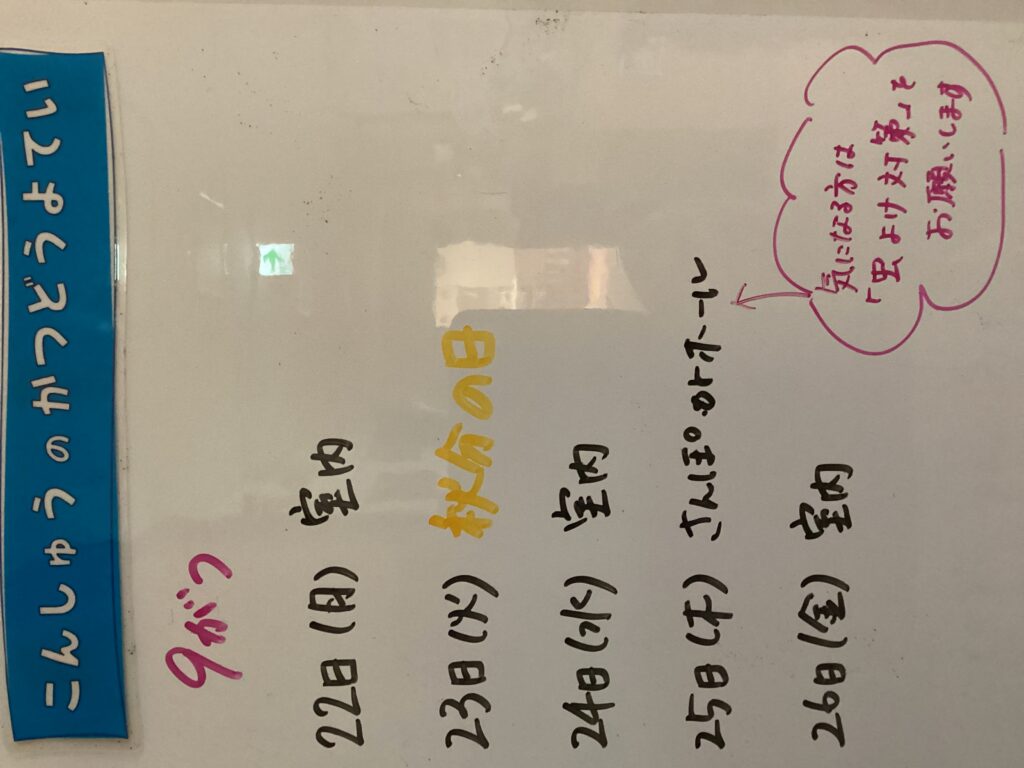 こんしゅうのかつどうよてい
9がつ
22日(月) 室内
23日(火) 秋分の日
24日(水) 室内
25日(木) さんぽorホール
26日(金) 室内
気になる方は
「虫よけ対策」を
お願いします